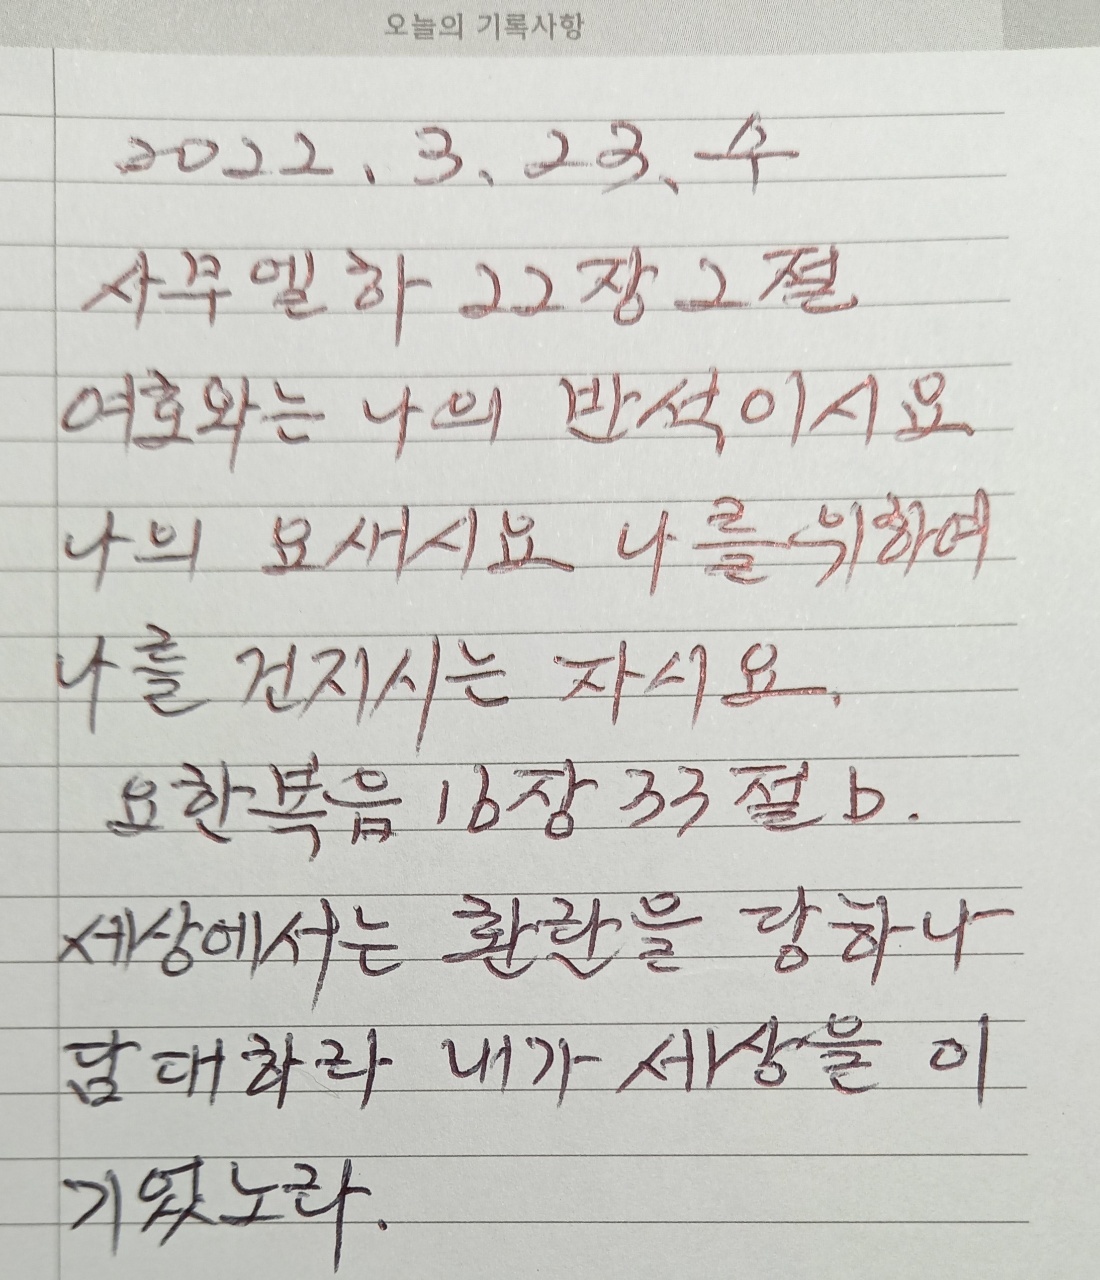 오늘의 기록사항
2022. 3. 23. 수
사무엘하 22장 2절
여호와는 나의 반석이시요
나의 요새시요 나를 위하여
나를 건지시는 자시요.
요한복음 16장 33절 b.
세상에서는 환란을 당하나
담대하라 내가 세상을 이
기었노라.